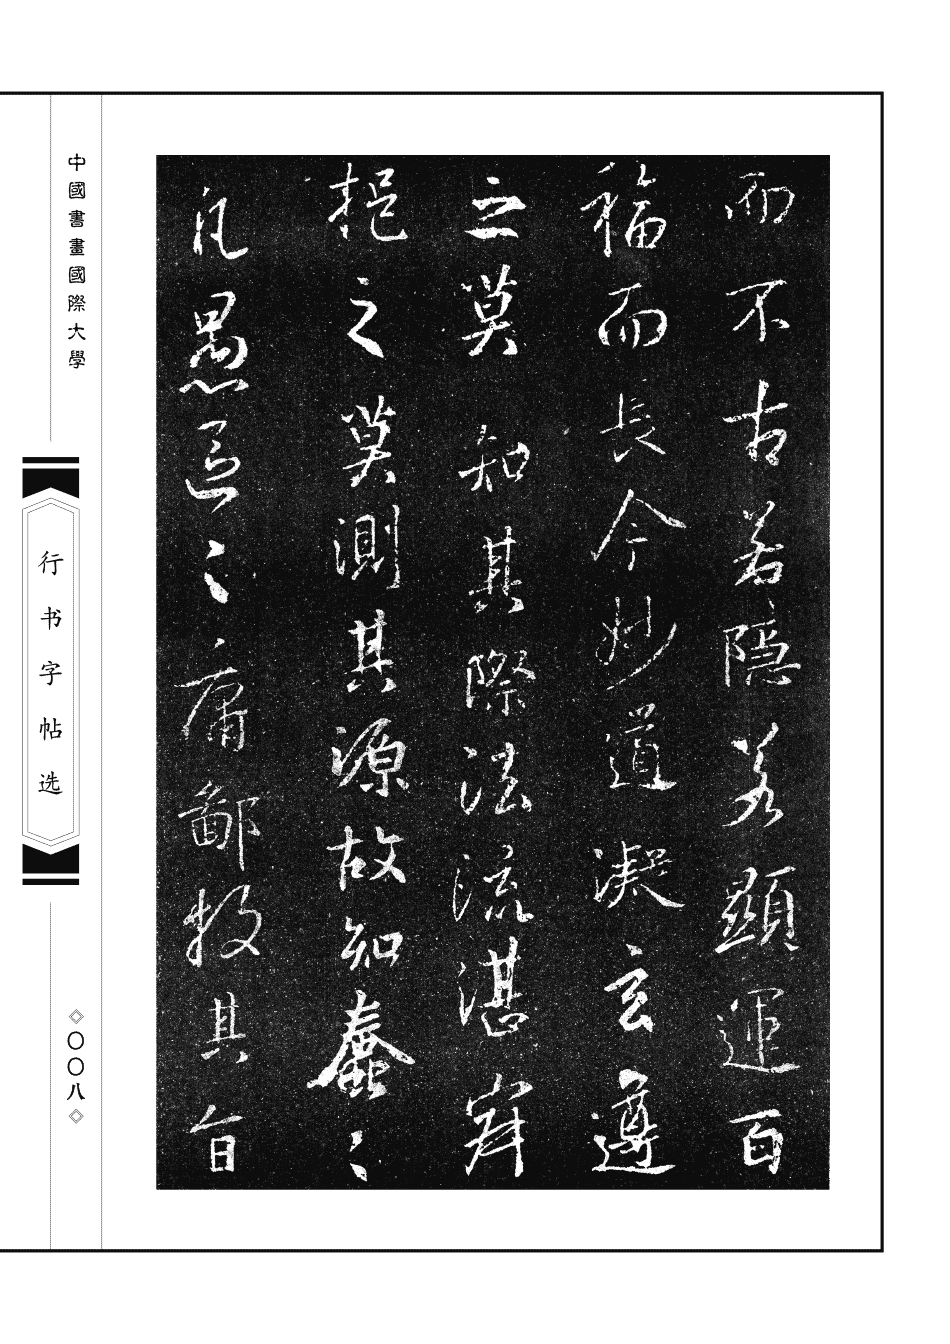 而不古若隱若顯運百
福而長今妙道凝玄遵
之莫知其際法流湛寂
挹之莫測其源故知蠢〻
凡愚區〻庸鄙投其旨
中國書畫國際大學
行书字帖选
〇〇八